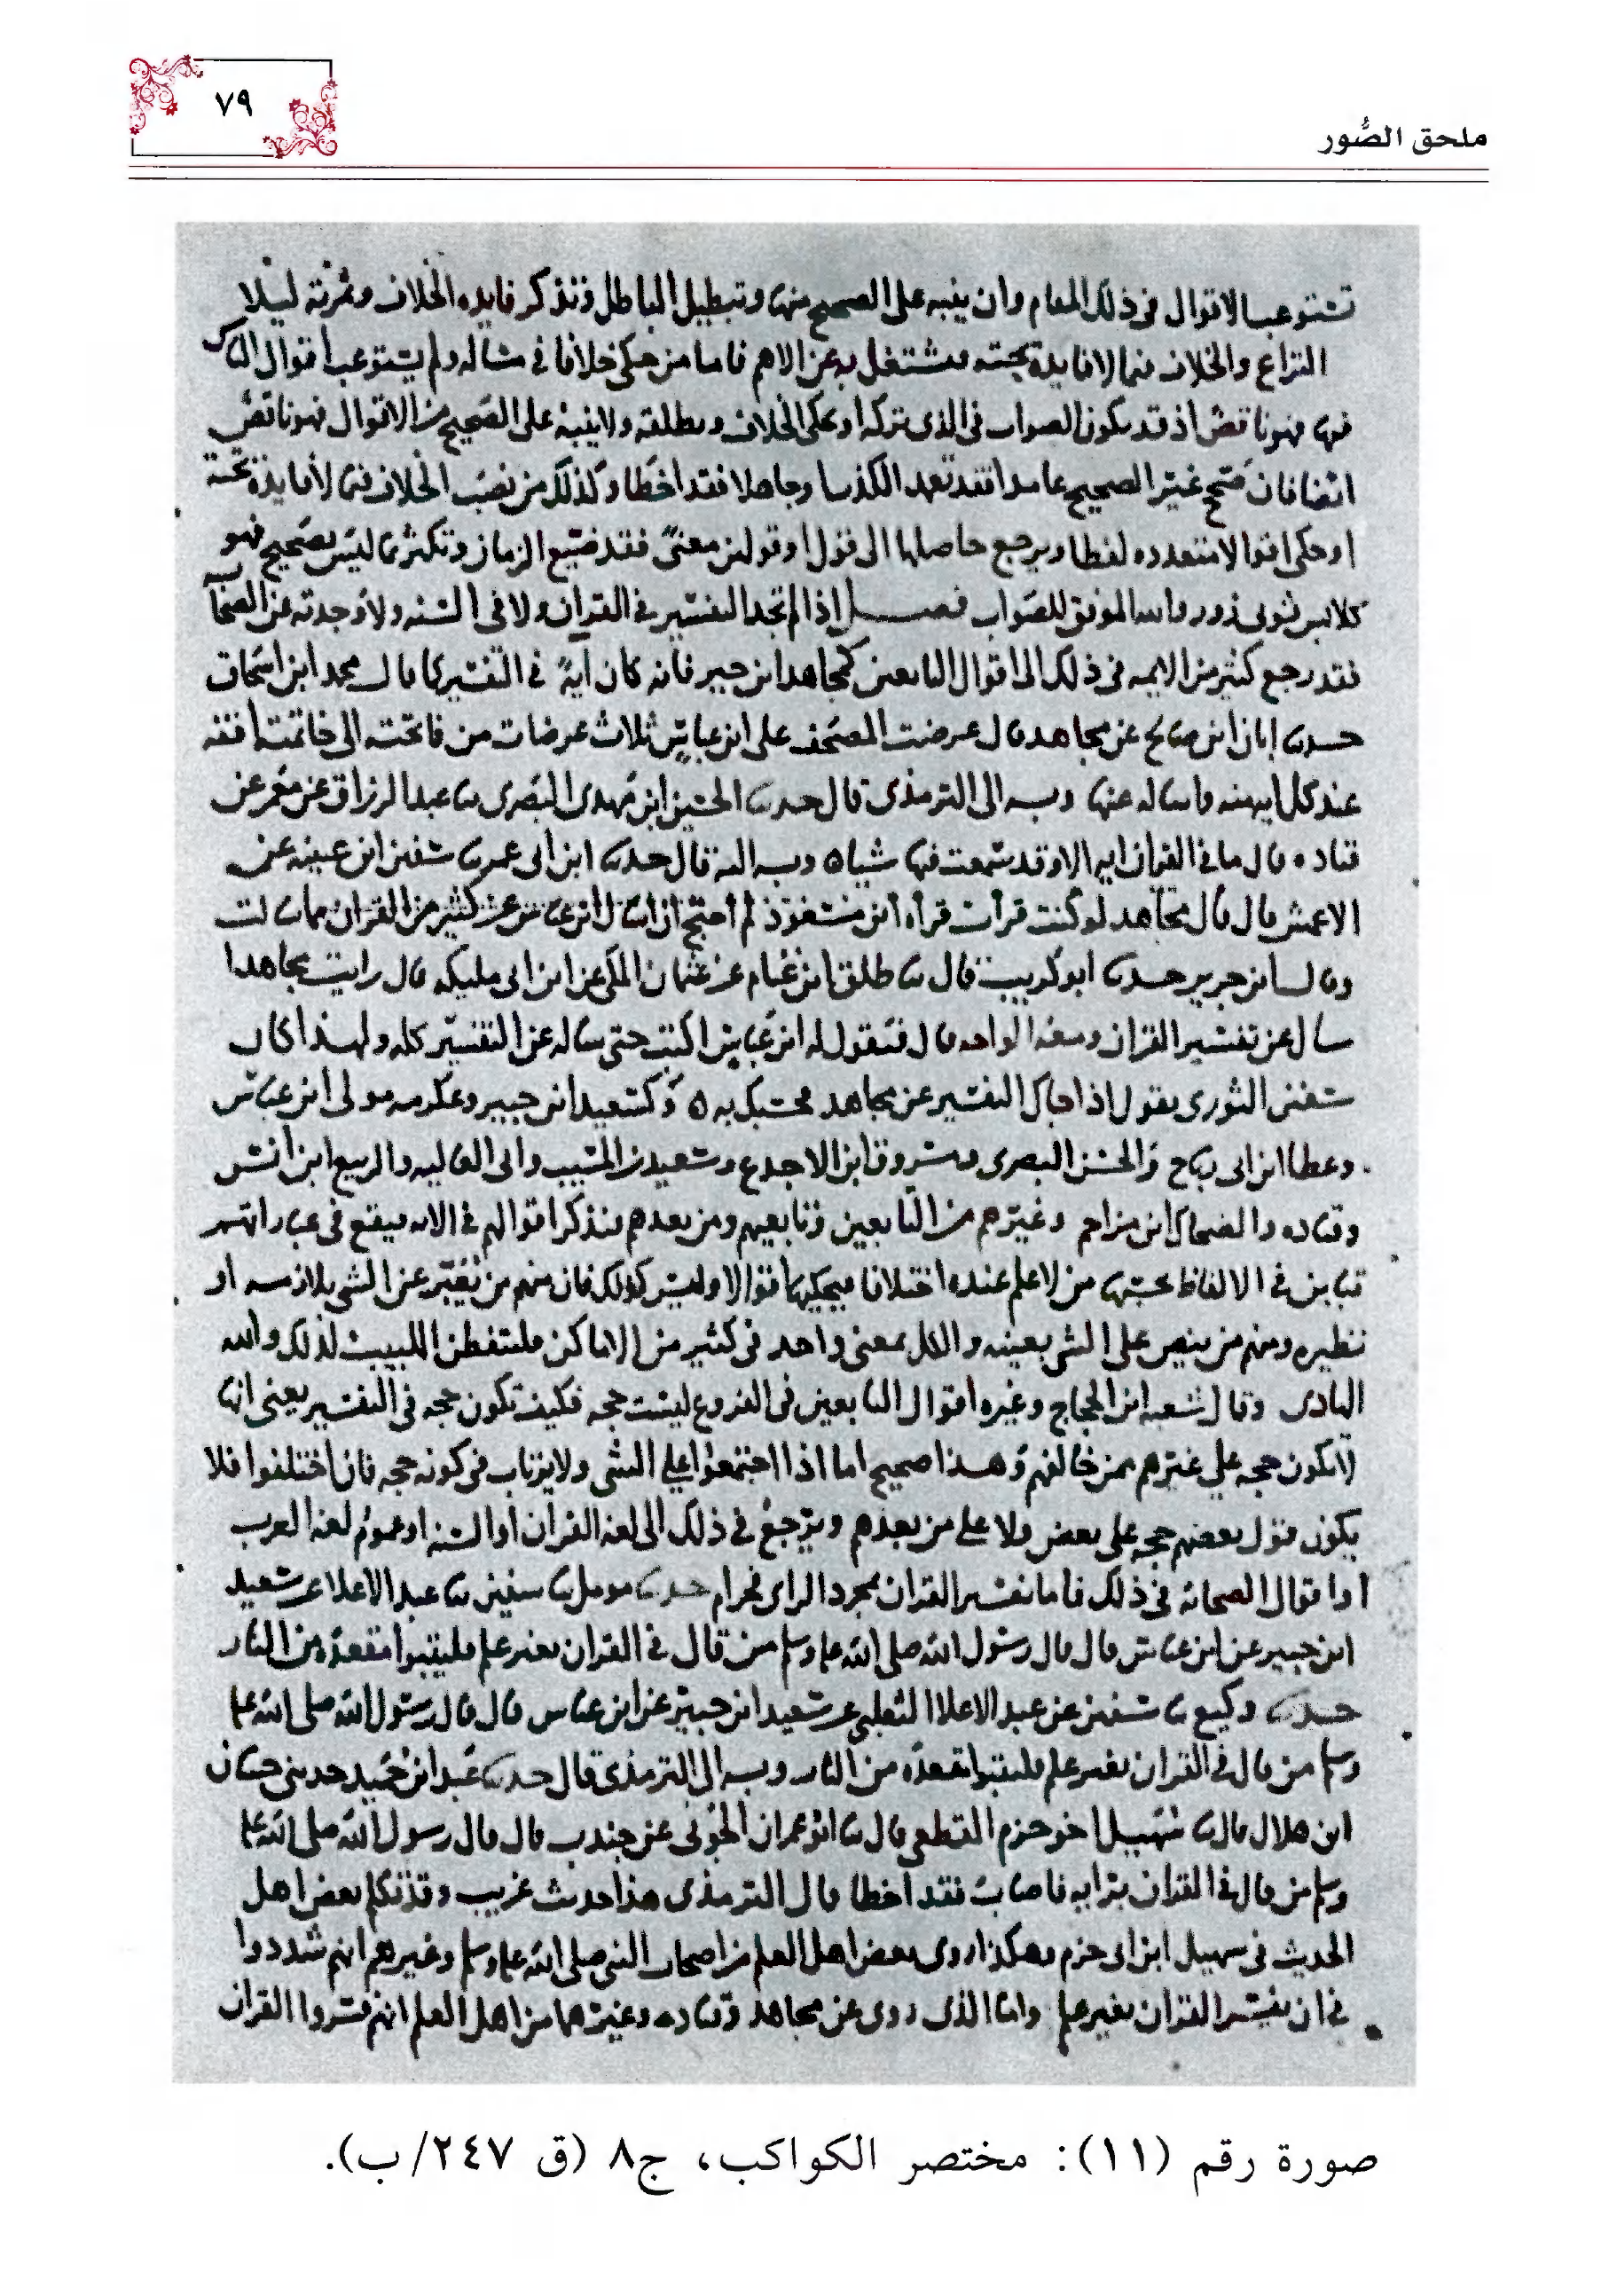 ملحق الصُّور
٧٩
تستوعب الاقوال في ذلك المقام وان ينبه على الصحيح منها وتبطيل الباطل وتذكر فايده الخلاف وثمرته ليلا
النزاع والخلاف فيما لا فايدة تحته فيشتغل به عن الاهم فاما من حكى خلافا في مساله ولم يستوعب اقوال الناس
فيها فهو ناقص اذ قد يكون الصواب في الذى تركه او يحكى الخلاف ويطلقه ولا ينبه على الصحيح من الاقوال فهو ناقص
ايضا فان صحح غير الصحيح عامدا فقد تعمد الكذب او جاهلا فقد اخطا وكذلك من نصب الخلاف فيما لا فايدة تحته
او حكى اقوالا متعدده لفظا ويرجع حاصلها الى قول او قولين معنى فقد ضيع الزمان وتكثر بما ليس بصحيح فهو
كلابس ثوبى زور والله الموفق للصواب فصل اذا لم تجد التفسير في القران ولا في السنه ولا وجدته عن الصحابة
فقد رجع كثير من الايمه في ذلك الى اقوال التابعين كمجاهد ابن جبر فانه كان آية في التفسير كما قال محمد ابن اسحاق
حدثنا ابان ابن صالح عن مجاهد قال عرضت المصحف على ابن عباس ثلاث عرضات من فاتحته الى خاتمته اوقفه
عند كل ايه منه واساله عنها وبه الى الترمذى قال حدثنا الحسين ابن مهدى البصرى ثنا عبد الرزاق عن معمر عن
قتاده قال ما في القران ايه الا وقد سمعت فيها شيا وبه اليه قال حدثنا ابن ابى عمر ثنا سفين ابن عيينه عن
الاعمش قال قال مجاهد لو كنت قرات قرأه ابن مسعود لم احتج ان اسال ابن عباس عن كثير من القران مما سالت
وقال ابن جرير حدثنا ابو كريب قال ثنا طلق ابن غنام عن عثمان المكى عن ابن ابى مليكه قال رايت مجاهدا
سال عن تفسير القران ومعه الواحه قال فيقول له ابن عباس اكتب حتى ساله عن التفسير كله ولهذا كان
سفين الثورى يقول اذا جاك التفسير عن مجاهد فحسبك به وكسعيد ابن جبير وعكرمه مولى ابن عباس
وعطا ابن ابى رباح والحسن البصرى ومسروق ابن الاجدع وسعيد بن المسيب وابى العاليه والربيع ابن انس
وقتاده والضحاك ابن مزاحم وغيرهم من التابعين وتابعيهم ومن بعدهم فتذكر اقوالهم في الايه فيقع في عباراتهم
تباين في الالفاظ يحسبها من لا علم عنده اختلافا فيحكيها اقوالا وليس كذلك فان منهم من يعبر عن الشي بلازمه او
نظيره ومنهم من ينص على الشي بعينه والكل بمعنى واحد في كثير من الاماكن فليتفطن اللبيب لذلك والله
الهادى وقال شعبه ابن الحجاج وغيره اقوال التابعين في الفروع ليست حجه فكيف تكون حجه في التفسير يعنى انها
لا تكون حجه على غيرهم ممن خالفهم وهذا صحيح اما اذا اجتمعوا على الشي ولا يرتاب في كونه حجه فان اختلفوا فلا
يكون قول بعضهم حجه على بعض ولا على من بعدهم ويرجع في ذلك الى لغه القرآن او السنه او عموم لغه العرب
او اقوال الصحابه في ذلك فاما تفسير القران بمجرد الراى فحرام حدثنا مومل ثنا سفين ثنا عبد الاعلا عن سعيد
ابن جبير عن ابن عباس قال قال رسول الله صلى الله عليه وسلم من قال في القران بغير علم فليتبوا مقعده من النار
حدثنا وكيع ثنا سفين عن عبد الاعلا الثعلبي عن سعيد ابن جبير عن ابن عباس قال قال رسول الله صلى الله عليه
وسلم من قال في القران بغير علم فليتبوا مقعده من النار وبه الى الترمذى قال حدثنا عبد ابن حميد حدثنى حبان
ابن هلال قال ثنا سهيل اخو حزم القطعى قال ثنا ابو عمران الجونى عن جندب قال قال رسول الله صلى الله عليه
وسلم من قال في القران برايه فاصاب فقد اخطا قال الترمذى هذا حديث غريب وقد تكلم بعض اهل
الحديث في سهيل ابن ابى حزم وهكذا روى بعض اهل العلم من اصحاب النبي صلى الله عليه وسلم وغيرهم انهم شددوا
في ان يفسر القران بغير علم واما الذى روى عن مجاهد وقتاده وغيرهما من اهل العلم انهم فسروا القران
صورة رقم (١١): مختصر الكواكب، ج٨ (ق ٢٤٧/ب).